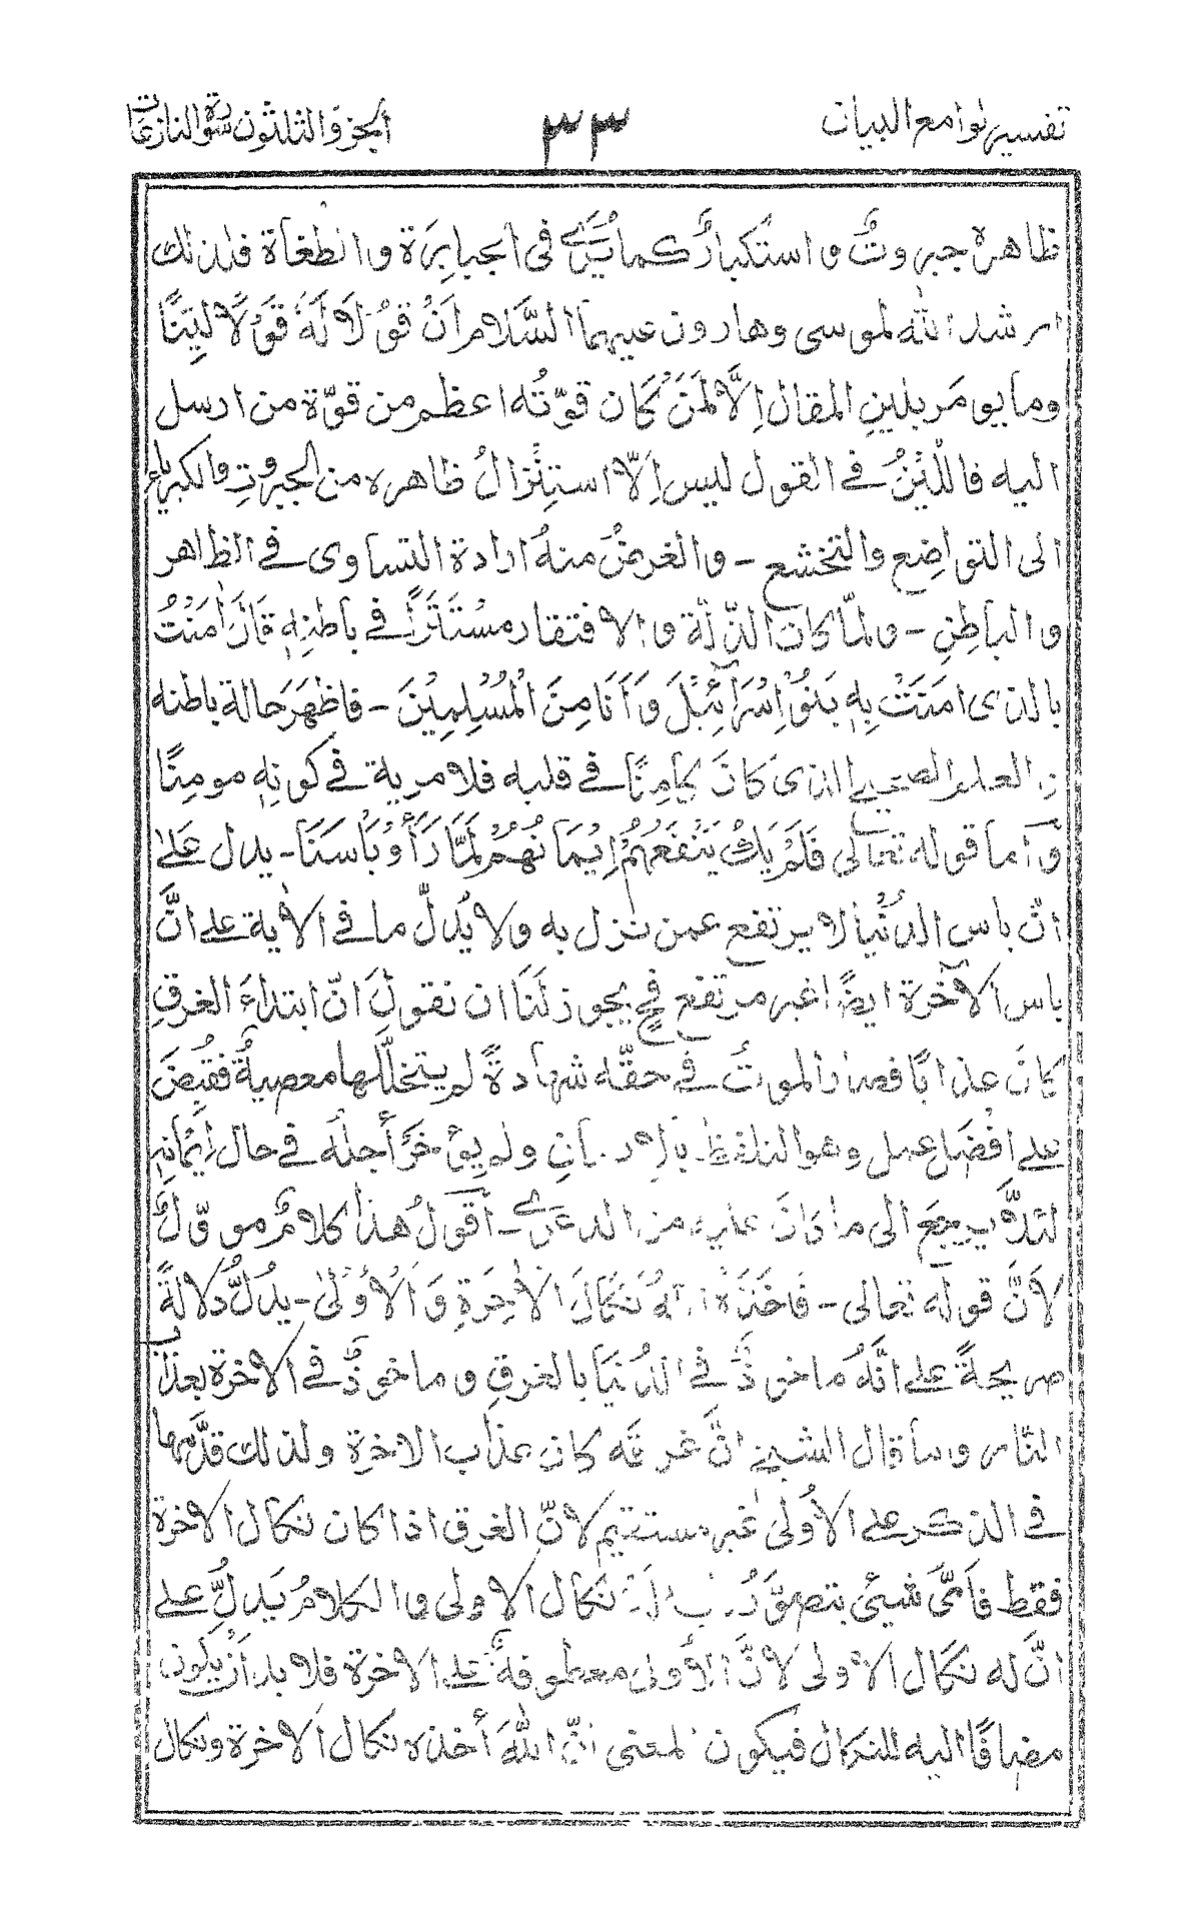 تفسير لوامع البيان ٣٣ الجزؤ الثلثون سورة النازعات
ظاهره جبروتٌ و استكبارٌ كما يُرٰى فى الجبابرة و الطغاة فلذلك
ارشد اللّٰه لموسى وهارون عليهما السَّلام اَنْ قُوْلَا لَهٗ قَوْلًا لَيِّنًا
وما يومر بلين المقال اِلَّا لمَنْ كَان قوّتُه اعظم من قوّة من ارسل
اليه فاللّيْنُ فى القول ليس اِلّا استِنْزالُ ظاهره من الجبروتِ والكبرياء
الى التواضِع والتخشع - والغرضُ منهُ ارادة التساوى فى الظاهر
و الباطِنِ - ولمّا كان الذّلّة و الافتقار مُسْتَتَرًا فى باطنِهٖ قَالَ اٰمَنْتُ
بالذى امَنَتْ بِهٖ بَنُوْ اِسْرَآئِيْلَ وَ اَنَا مِنَ الْمُسْلِمِيْنَ - فاظهَرَ حالة باطنه
العلم الصحيح الذى كَانَ كَامِنًا فى قلبه فلا مرية فى كونِهٖ مومِنًا
وّامّا قوله تعالى فَلَمْ يَكُ يَنْفَعُهُمْ اِيْمَانُهُمْ لَمَّا رَأَوْ بَأْسَنَا - يدل على
انّ باس الدُنْيا لا يرتفع عمن نزل به ولا يَدلّ ما فى الاٰية على انَّ
باس الآخرة ايضًا غير مرتفع فحٍ يجوز لَنَا ان نقولَ انّ ابتداءَ الغرقِ
كانَ عذابًا فصار الموتُ فى حقّه شهادةً لم يتخلَّلها معصيةٌ فقُبِضَ
على افضل عمل وهو التلفّظ بالايمانِ ولم يؤخَّر أجلُه فى حال اِيْمَانِهٖ
لئلّا يرجع الى ما كَانَ عليه من الدعوٰى - اَقولُ هٰذا كلامٌ موّولٌ
لاَنَّ قوله تعالى - فَاَخَذَهُ اللّٰهُ نَكَالَ الْاٰخِرَةِ وَ الْاُوْلٰى - يدُلُّ دلالةً
صريحةً على انَّهُ ماخوذٌ فى الدُنيَا بالغرقِ و ماخوذٌ فى الاخرة بعذاب
النّار و ما قال الشيخ انَّ غرقه كان عذاب الاخرة ولذلك قدَّمها
فى الذكر على الاُولٰى غير مستقيم لانّ الغرق اذا كان نكال الاخرة
فقط فاَىُّ شيئى يتصوَّر نكال الاولى والكلامُ يَدلّ على
انَّ له نكال الاولى لانَّ الأولىٰ معطوفةٌ على الاخرة فلا بد اَنْ يكون
مضافًا اليه للنكال فيكون المعنى انّ اللّٰهَ أخذه نكال الاخرة ونكال